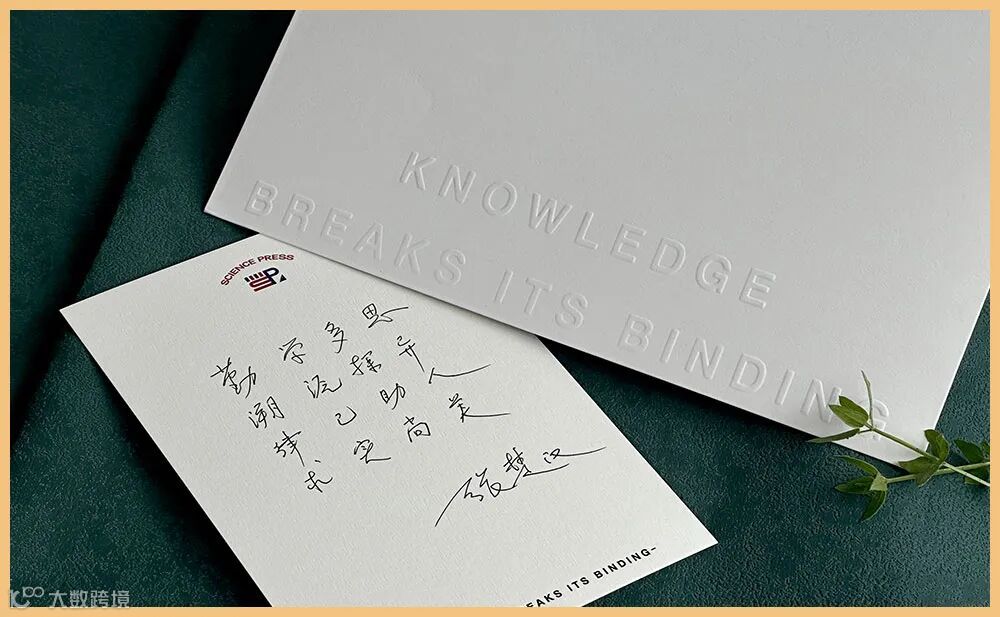 KNOWLEDGE
BREAKS ITS BINDING
SCIENCE PRESS
勤学多思
溯流探异
律己助人
求实尚美
张楚汉
EAKS ITS BINDING-
大数跨境